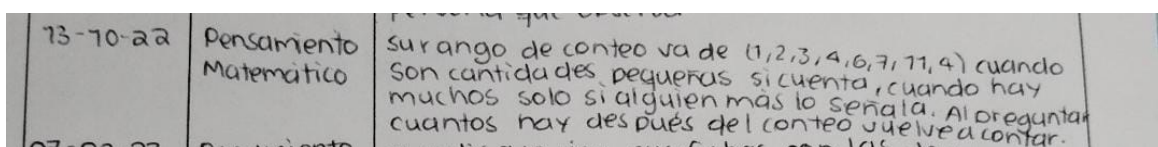 13-10-22 Pensamiento su rango de conteo va de (1,2,3,4,6,7,11,4) cuando
Matemático son cantidades pequeñas si cuenta, cuando hay
muchos solo si alguien más lo señala. Al preguntar
cuantos hay después del conteo vuelve a contar.